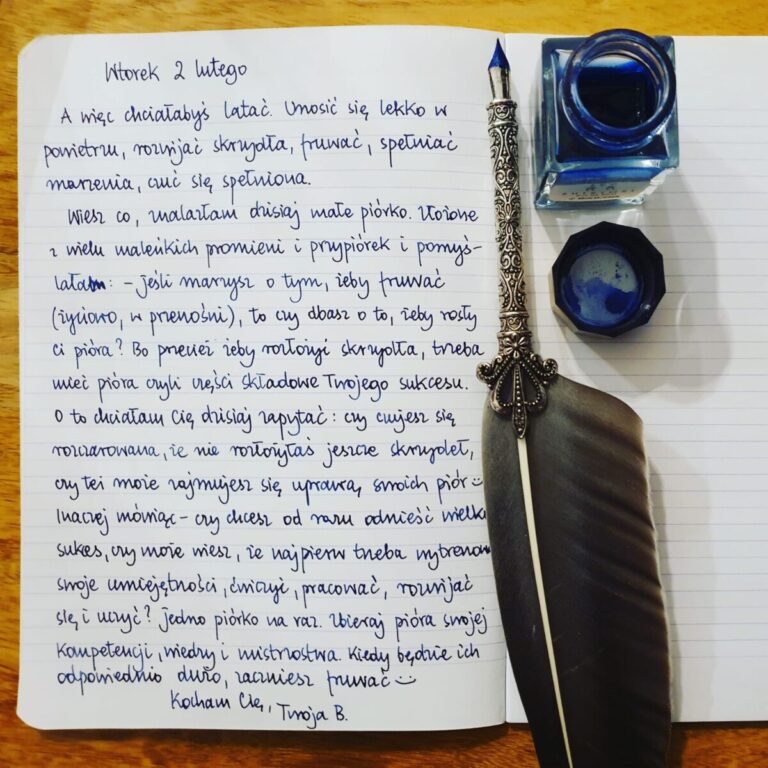 Wtorek 2 lutego
A więc chciałabyś latać. Unosić się lekko w
powietrzu, rozwijać skrzydła, fruwać, spełniać
marzenia, czuć się spełniona.
Wiesz co, znalazłam dzisiaj małe piórko. Złożone
z wielu maleńkich promieni i przypiórek i pomyś-
lałam: - jeśli marzysz o tym, żeby fruwać
(życiowo, w przenośni), to czy dbasz o to, żeby rosły
Ci pióra? Bo przecież żeby rozłożyć skrzydła, trzeba
mieć pióra czyli części składowe Twojego sukcesu.
O to chciałam Cię dzisiaj zapytać: czy czujesz się
rozczarowana, że nie rozłożyłaś jeszcze skrzydeł,
czy też może zajmujesz się uprawą swoich piór :)
Inaczej mówiąc - czy chcesz od razu odnieść wielki
sukces, czy może wiesz, że najpierw trzeba wytrenować
swoje umiejętności, ćwiczyć, pracować, rozwijać
się i uczyć? Jedno piórko na raz. Zbieraj pióra swojej
kompetencji, wiedzy i mistrzostwa. Kiedy będzie ich
odpowiednio dużo, zaczniesz fruwać :)
Kocham Cię, Twoja B.